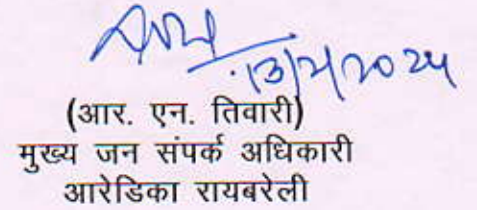 13/2/2024
(आर. एन. तिवारी)
मुख्य जन संपर्क अधिकारी
आरेडिका रायबरेली